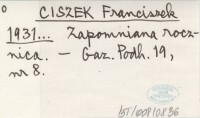 o CISZEK Franciszek
1931... Zapomniana rocz-
nica. – Gaz. Podh. 19,
nr 8.